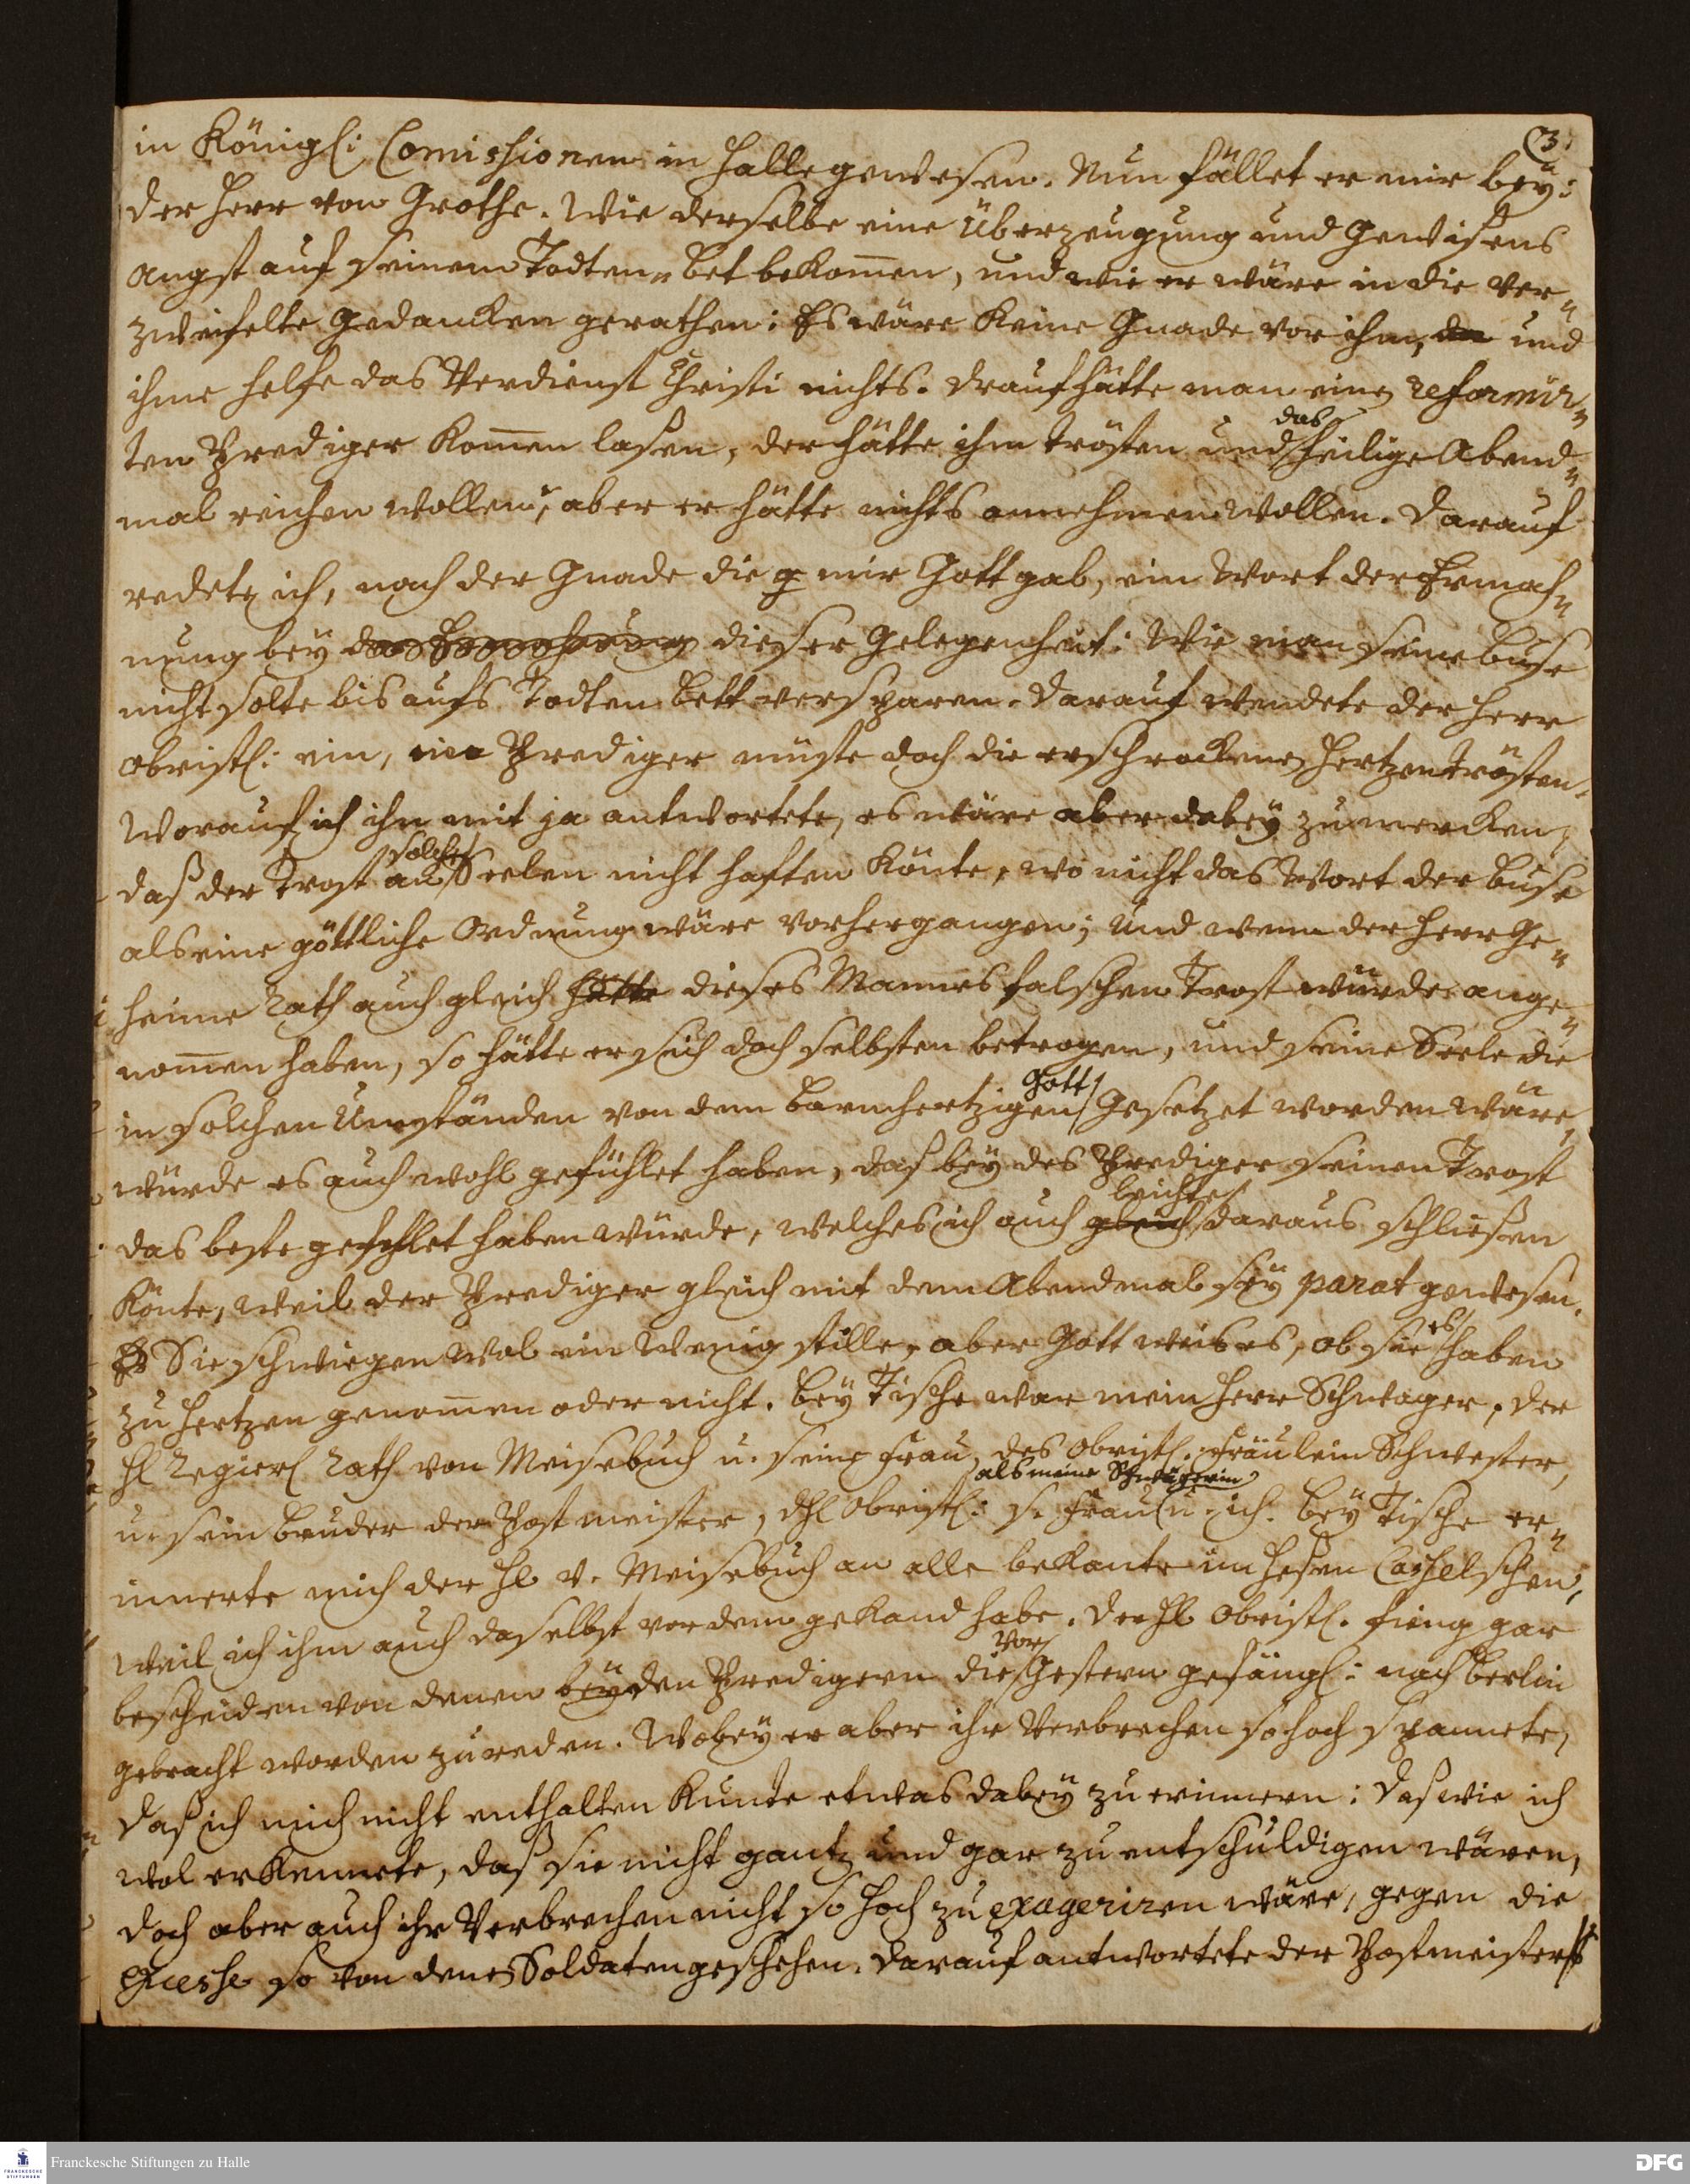 3.
in Königl: Comissionen in Halle gewesen. Nun fället er mir bey:
der Herr von Grothe. Wie derselbe eine Überzeugung und Gewisens
angst auf seinem Todten„bet bekom̅en, und wie er wäre in die ver„
zweifelte Gedancken gerathen: Es wäre keine Gnade vor ihm, und
ihme helfe das Verdienst Christi nichts. Drauf hätte man einen reformir„
ten Prediger kom̅en lasen, der hätte ihm trösten und das heilige Abend„
mal reichen wollen, aber er hätte nichts annehmen wollen. Darauf
redete ich, nach der Gnade die mir Gott gab, ein Wort der Ermah„
nung bey dieser Gelegenheit: Wie man seine Buse
nicht solte bis aufs Todten bett versparen. Darauf wendete der Herr
Obristl: ein, ein Prediger müste doch die erschrockenen Hertzen trösten.
Worauf ich ihm mit ja antwortete, es wäre aber dabey zu mercken,
daß der Trost an solchen Seelen nicht haften könte, wo nicht das Wort der Buse
als eine göttliche Ordnung wäre vorhergangen; und wenn der Herr Ge„
heime Rath auch gleich hätte dieses Mannes falschen Trost würde ange„
nom̅en haben, so hätte er sich doch selbsten betrogen, und seine Seele die
in solchen Umständen von dem barmhertzigen Gott gesetzet worden wäre,
würde es auch wohl gefühlet haben, das bey des Prediger seinen Trost
das beste gefehlet haben würde, welches ich auch gleich leichte daraus schließen
könte, weil der Prediger gleich mit dem Abendmal sey parat gewesen.
Sie schwiegen wol ein wenig stille, aber Gott weis es, ob sie es haben
zu Hertzen genom̅en oder nicht. Bey Tische war mein Herr Schwager, der
Hl Regierl Rath von Meisebuch u. seine Frau, des Obristl. Fräulein Schwester,
u. sein Bruder der Postmeister, dHl Obristl: s. Frau als meine Schwägerin u. ich. Bey Tische er„
innerte mich der Hl v. Meisebuch an alle bekante im Hesen Casselschen,
weil ich ihm auch daselbst vor dem gekand habe. Der Hl Obristl. fieng gar
bescheiden von denen beyden Predigern die Vorgestern gefängl: nach Berlin
gebracht worden zureden. Wobey er aber ihr Verbrechen so hoch spannete,
daß ich mich nicht enthalten kunte etwas dabey zu erinnern: Daß wie ich
wol erkennete, daß sie nicht gantz und gar zu entschuldigen wären,
doch aber auch ihr Verbrechen nicht so hoch zu exageriren wäre, gegen die
Excesse so von denen Soldaten geschehen. Darauf antwortete der Postmeister
Franckesche Stiftungen zu Halle
FRANCKESCHE STIFTUNGEN
DFG